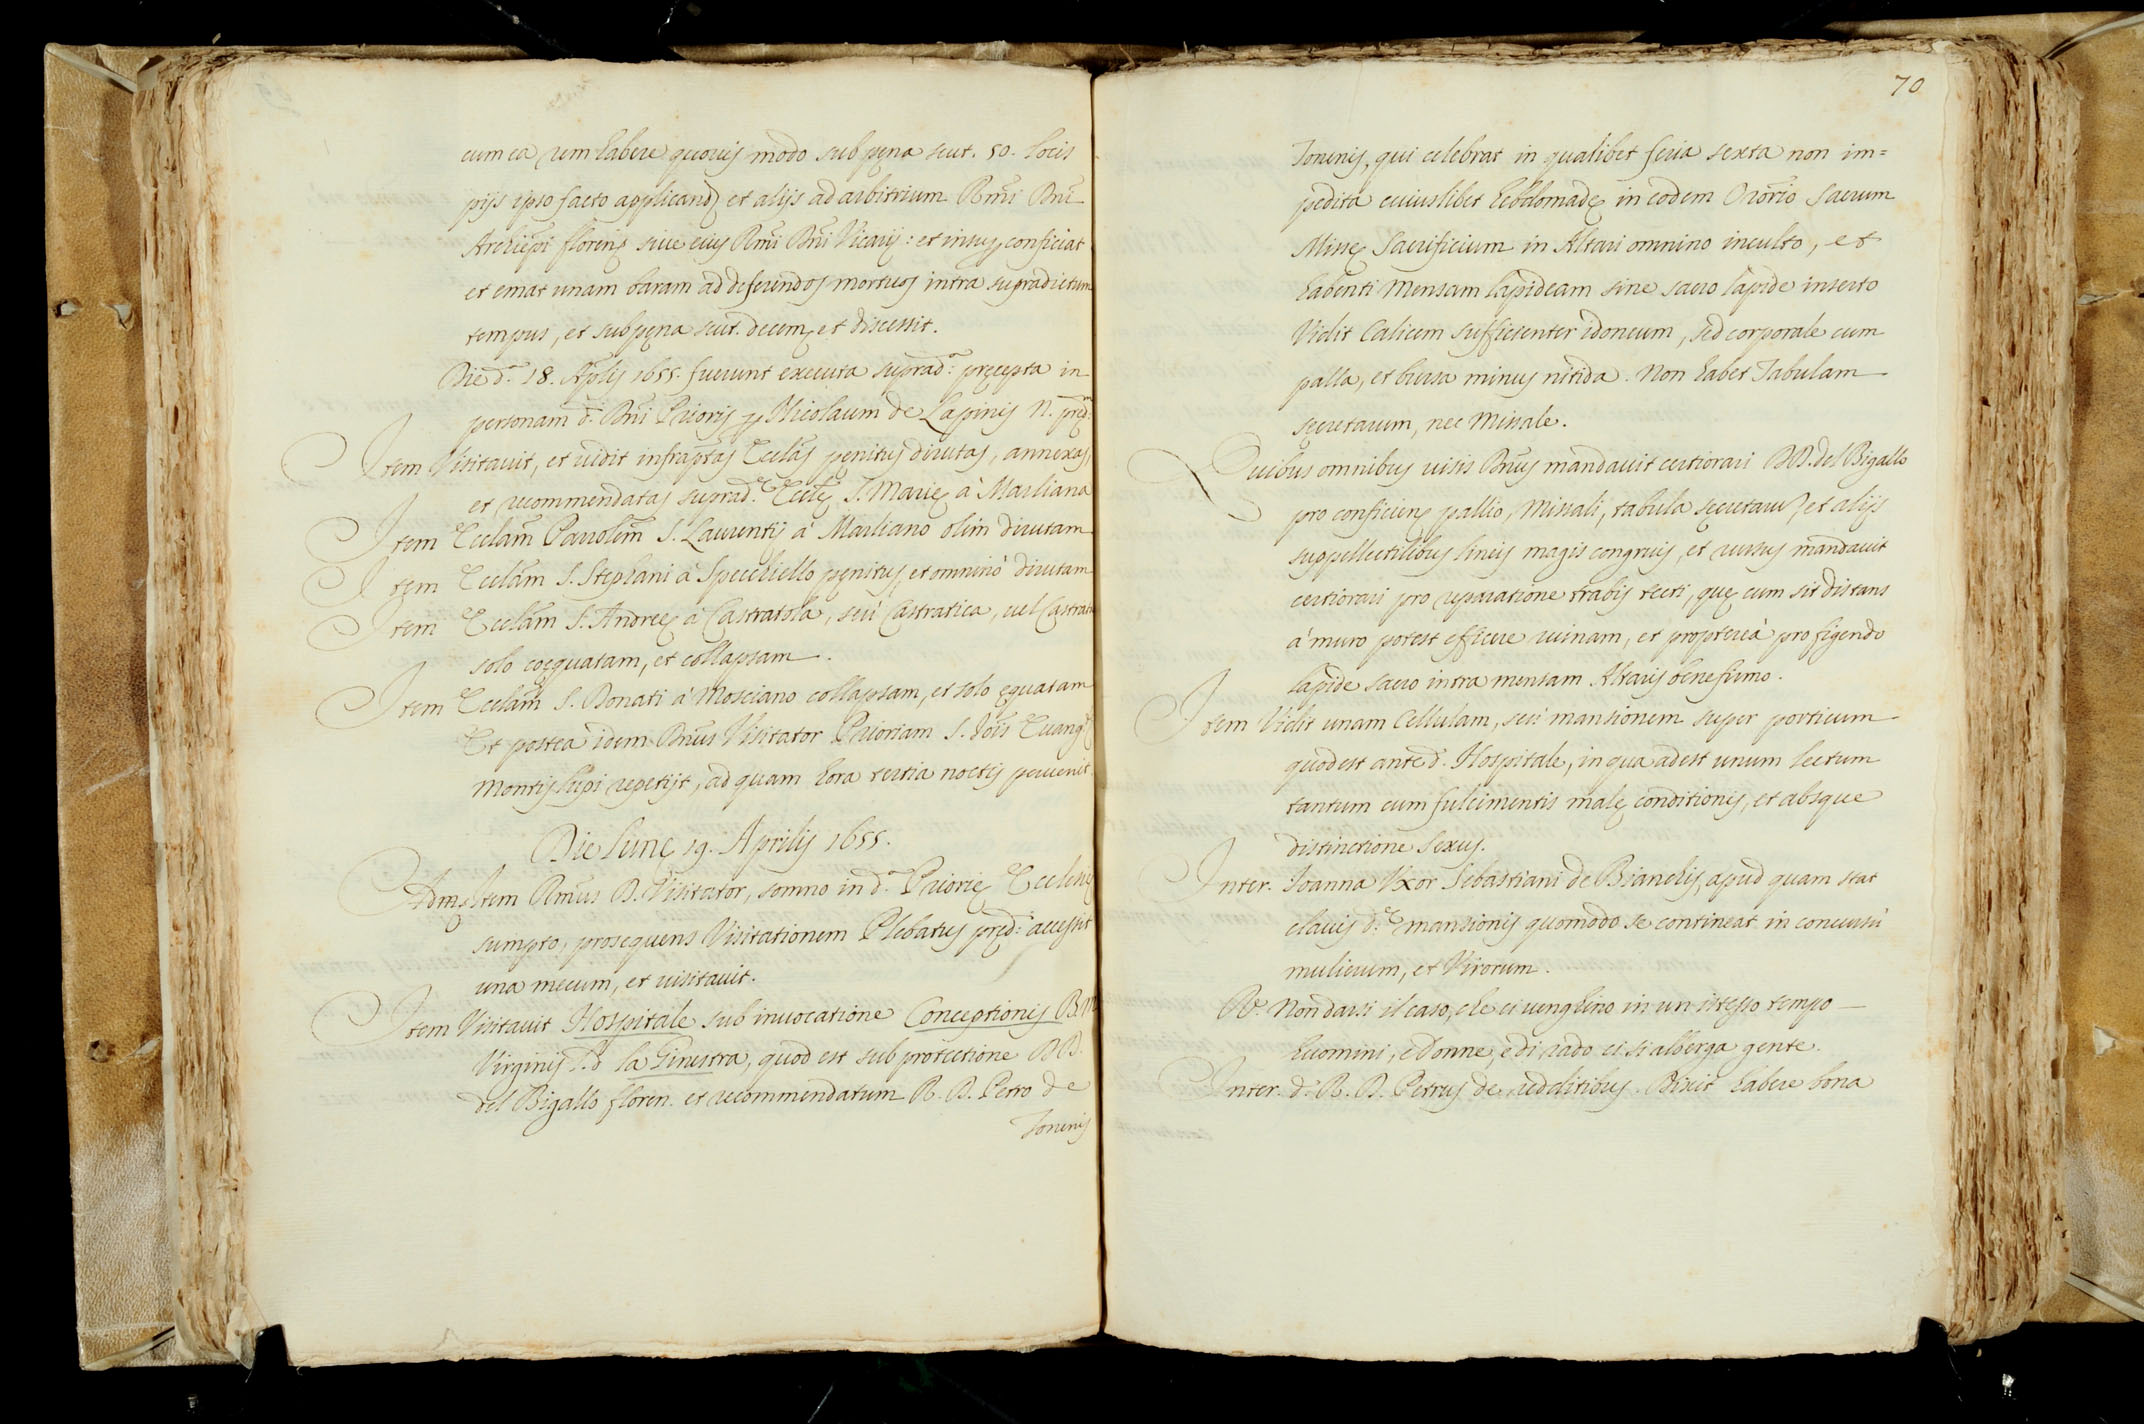 cum ea rem habere quovis modo sub pena scut. 50. locis
pijs ipso facto applicand et alijs ad arbitrium Rmi Dni
Archiepi floreni sive eius Rmi Dni Vicarij: et insup conficiat
et emat unam baram ad deferendos mortuos intra supradictum
tempus, et sub pena scut. decem et discessit.
Die da. 18. Aplis 1655. fuerunt executa suprad. precepta in
personam di. Dni Prioris p Nicolaum de Lapinis N. pred.
Item Visitavit, et vidit infraptas Ecclas penitus dirutas, annexas,
et recommendatas suprad. Eccle S. Marie à Marliana
Item Ecclam Parrolem S. Laurentij à Marliano olim dirutam
Item Ecclam S. Stephani à Specchiello penitus, et omninò dirutam
Item Ecclam S. Andree à Castratola, seù Castratica, vel Castrat
solo coequatam, et collapsam.
Item Ecclam S. Donati à Mosciano collapsam, et solo equatam
Et postea idem Dnus Visitator Prioriam S. Jois Evang
Montislupi repetijt, ad quam hora tertia noctis pervenit.
Die lune 19. Aprilis 1655.
Adm Item Rmus D. Visitator, somno in da. Priorie Ecclesie
sumpto, prosequens Visitationem Plebatus pred: accessit
una mecum, et visitavit.
Item Visitavit Hospitale sub invocatione Conceptionis B. M
Virginis la Ginestra, quod est sub protectione DD.
del Bigallo floren. et recommendatum R. D. Petro de
Toninis
70
Toninis, qui celebrat in qualibet feria sexta non im=
pedita cuiuslibet hebdomade in eodem Ororio Sacrum
Misse Sacrificium in Altari omnino inculto, et
habenti Mensam lapideam sine sacro lapide inserto
Vidit Calicem sufficienter idoneum, sed corporale cum
palla, et bursa minus nitida. Non habet Tabulam
secretarum, nec Missale.
Quibus omnibus visis Dnus mandavit certiorari DD. del Bigallo
pro conficien pallio, Missali, tabula secretarum, et alijs
suppellectilibus lineis magis congruis, et rursus mandavit
certiorari pro reparatione trabis tecti, que cum sit distans
à muro potest efficere ruinam, et propterea pro figendo
lapide sacro intra mensam Altaris benefirmo.
Item Vidit unam Cellulam, seù mansionem super porticum
quod est ante d. Hospitale, in qua adest unum lectum
tantum cum fulcimentis male conditionis, et absque
distinctione Sexus.
Inter. Joanna Uxor Sebastiani de Bianchis, apud quam stat
clavis de. mansionis quomodo se contineat in concursù
mulierum, et Virorum.
Re. Non darsi il caso, che ci venghino in un istesso tempo
huomini, e Donne, e di rado ci si alberga gente.
Inter. d. R. D. Petrus de redditibus. Dixit habere bona